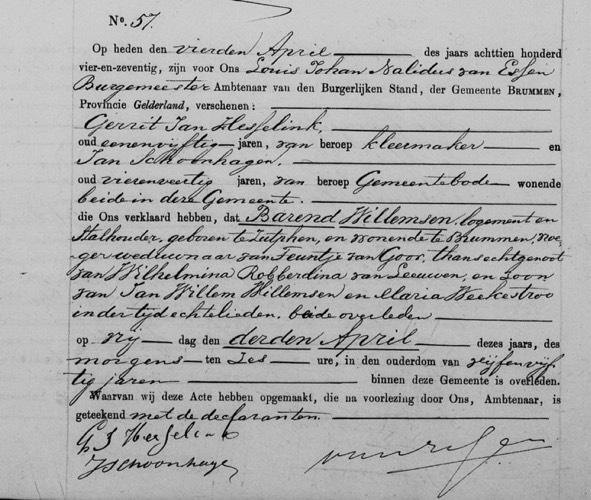 No. 57.
Op heden den vierden April des jaars achttien honderd
vier-en-zeventig, zijn voor Ons Louis Johan Nalidus van Essen
Burgemeester Ambtenaar van den Burgerlijken Stand, der Gemeente BRUMMEN,
Provincie Gelderland, verschenen:
Gerrit Jan Hesselink,
oud eenenvijftig jaren, van beroep kleermaker en
Jan Schoonhagen,
oud vierenveertig jaren, van beroep Gemeentebode wonende
beide in deze Gemeente.
die Ons verklaard hebben, dat Barend Willemsen, logement en
Stalhouder, geboren te Zutphen, en wonende te Brummen, vroe-
ger weduwnaar van Teuntje van Goor, thans echtgenoot
van Wilhelmina Robberdina van Leeuwen, en zoon
van Jan Willem Willemsen en Maria Weekestroo
in der tijd echtelieden, beide overleden
op vrij dag den derden April dezes jaars, des
morgens ten zes ure, in den ouderdom van vijfenvijf-
tig jaren binnen deze Gemeente is overleden.
Waarvan wij deze Acte hebben opgemaakt, die na voorlezing door Ons, Ambtenaar, is
geteekend met de declaranten.
G J Hesselink
J Schoonhagen
van Essen